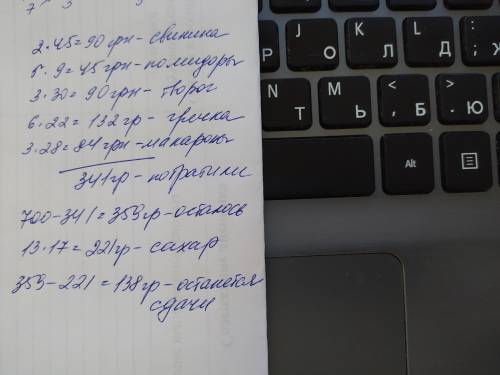 2·45=90грн-свинина
5·9=45грн-помидоры
3·30=90грн-творог
6·22=132гр-гречка
3·28=84грн-макароны
341гр-потратили
700-341=359гр-осталось
13·17=221гр-сахар
359-221=138гр-останется
сдачи
J
K
L
:
О
Л
Д
;
Ж
N
M
<
>
Т
Ь
, Б
. Ю
Alt